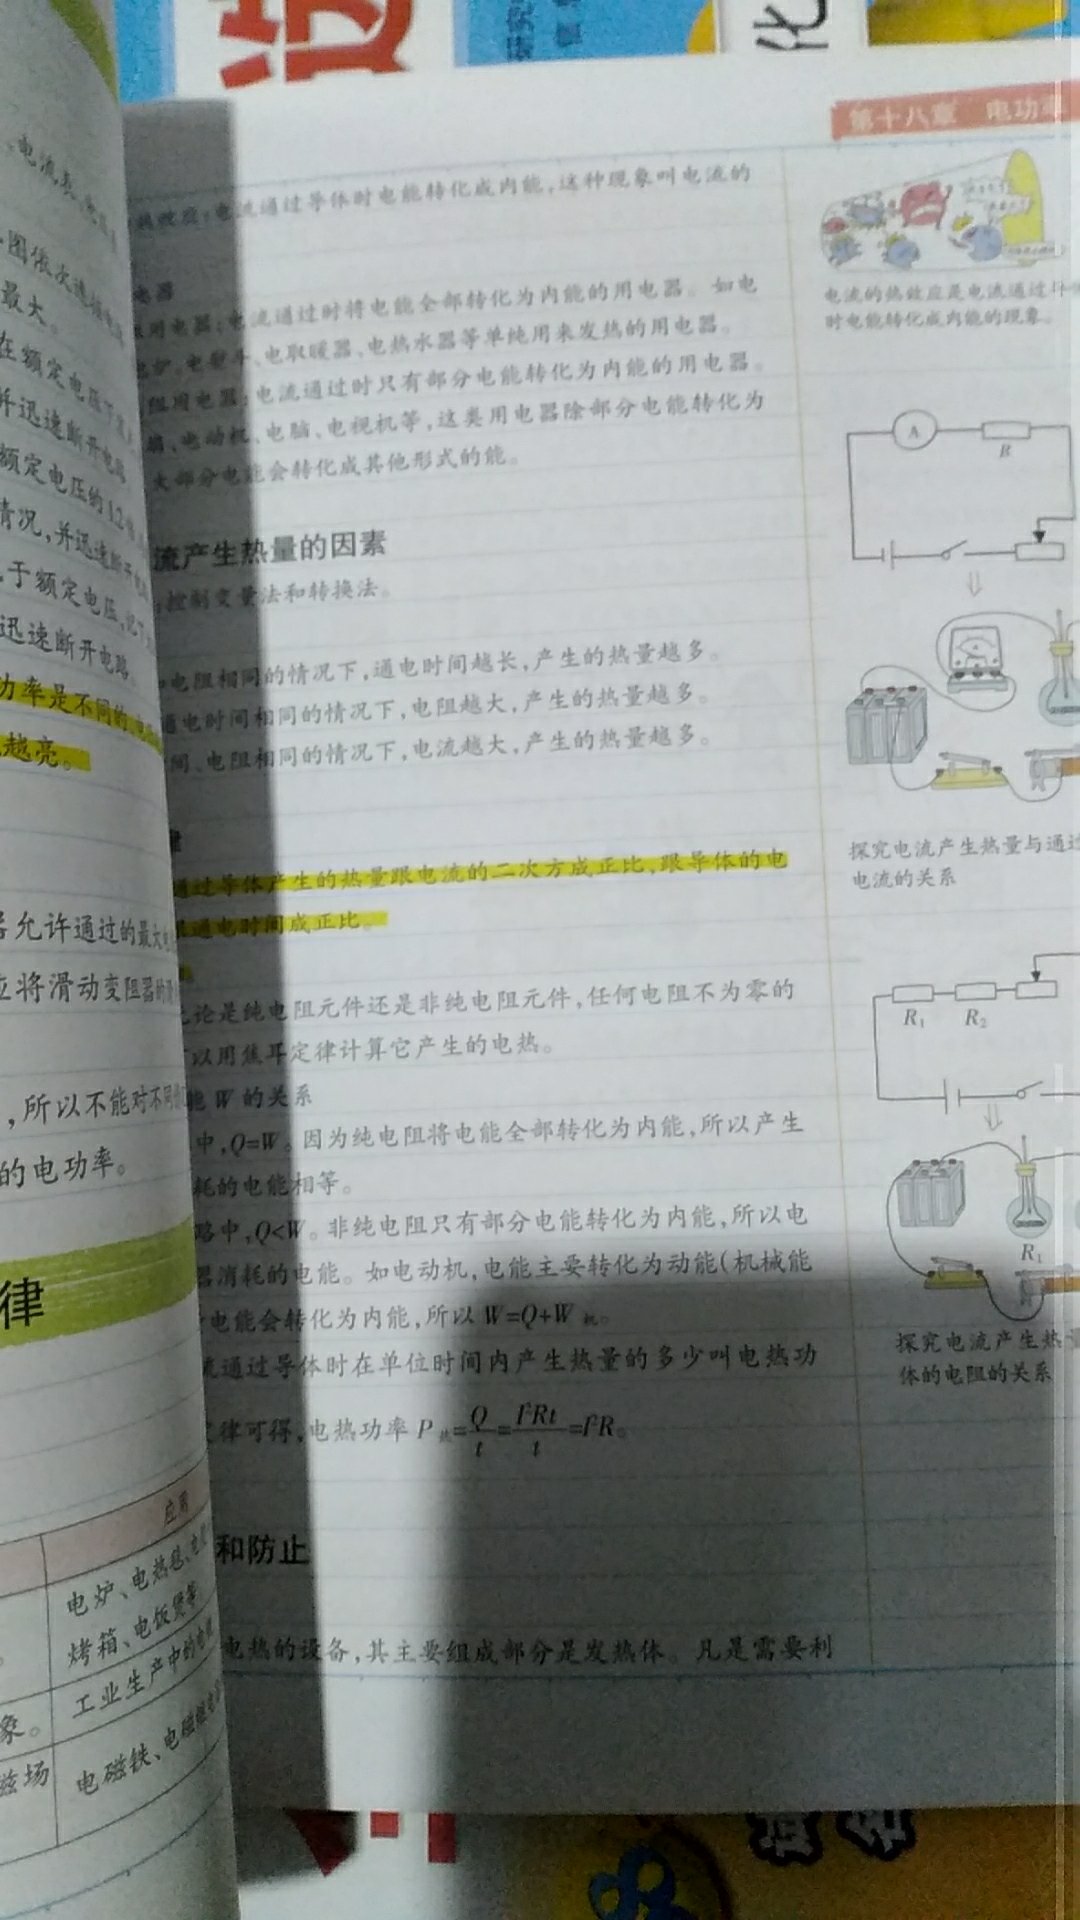 化
第十八章 电功率
电流表
图依次连接
最大。
在额定电压下
并迅速断开电路
额定电压的1.2
情况,并迅速断开
于额定电压,
迅速断开电路
功率是不同的
越亮。
允许通过的最大
应将滑动变阻器的
,所以不能对不同
的电功率。
律
应用
电炉、电热毯、
烤箱、电饭煲等
工业生产中的电
象。
磁场
电磁铁、电磁继电
热效应:电流通过导体时电能转化成内能,这种现象叫电流的
电器
用电器:电流通过时将电能全部转化为内能的用电器。如电
电炉、电熨斗、电取暖器、电热水器等单纯用来发热的用电器。
阻用电器:电流通过时只有部分电能转化为内能的用电器。
扇、电动机、电脑、电视机等,这类用电器除部分电能转化为
大部分电能会转化成其他形式的能。
流产生热量的因素
控制变量法和转换法。
电阻相同的情况下,通电时间越长,产生的热量越多。
通电时间相同的情况下,电阻越大,产生的热量越多。
间、电阻相同的情况下,电流越大,产生的热量越多。
律
通过导体产生的热量跟电流的二次方成正比,跟导体的电
跟通电时间成正比。
无论是纯电阻元件还是非纯电阻元件,任何电阻不为零的
可以用焦耳定律计算它产生的电热。
能 W 的关系
中,Q=W。因为纯电阻将电能全部转化为内能,所以产生
耗的电能相等。
路中,Q<W。非纯电阻只有部分电能转化为内能,所以电
器消耗的电能。如电动机,电能主要转化为动能(机械能
电能会转化为内能,所以 W=Q+W机。
流通过导体时在单位时间内产生热量的多少叫电热功
定律可得,电热功率 P热=Q/t=I²Rt/t=I²R。
和防止
电热的设备,其主要组成部分是发热体。凡是需要利
电流的热效应是电流通过导
时电能转化成内能的现象。
A
R
探究电流产生热量与通过
电流的关系
R₁ R₂
R₁
探究电流产生热量
体的电阻的关系